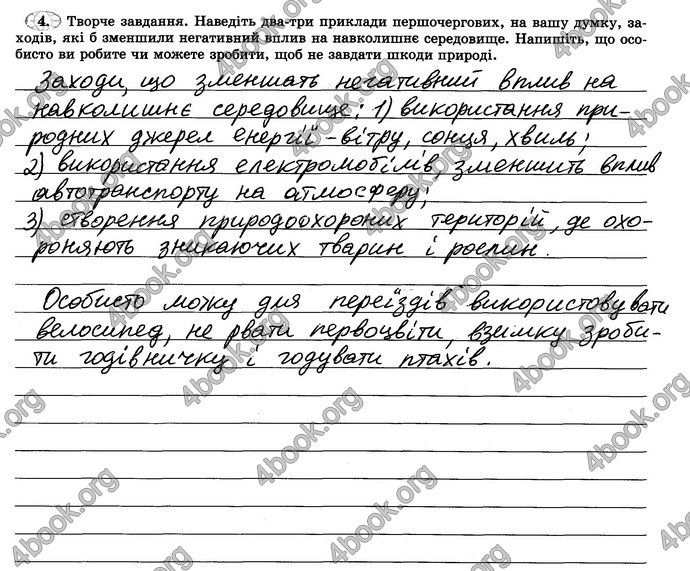 4. Творче завдання. Наведіть два-три приклади першочергових, на вашу думку, за-
ходів, які б зменшили негативний вплив на навколишнє середовище. Напишіть, що осо-
бисто ви робите чи можете зробити, щоб не завдати шкоди природі.
Заходи, що зменшать негативний вплив на
навколишнє середовище: 1) використання при-
родних джерел енергії - вітру, сонця, хвиль;
2) використання електромобілів зменшить вплив
автотранспорту на атмосферу;
3) створення природоохороних територій, де охо-
роняють зникаючих тварин і рослин.
Особисто можу для переїздів використовувати
велосипед, не рвати первоцвіти, взимку зроби-
ти годівничку і годувати птахів.
4book.org